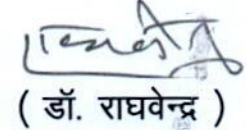 ( डॉ. राघवेन्द्र )